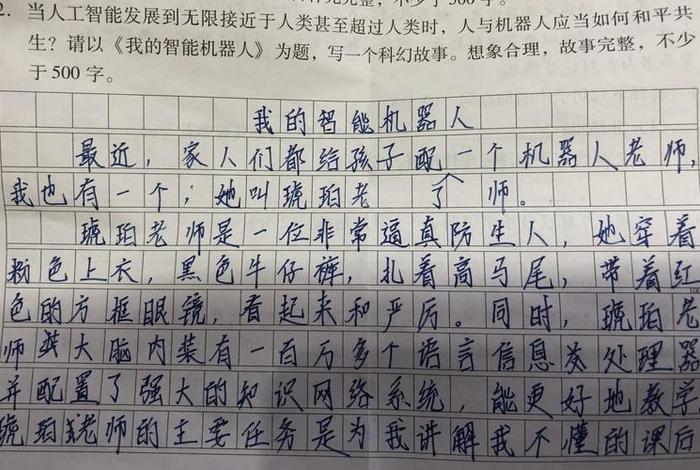 不少于 500 字。
2. 当人工智能发展到无限接近于人类甚至超过人类时，人与机器人应当如何和平共
生？请以《我的智能机器人》为题，写一个科幻故事。想象合理，故事完整，不少
于 500 字。
我的智能机器人
最近，家人们都给孩子配了一个机器人老师，
我也有一个，她叫琥珀老师。
琥珀老师是一位非常逼真防生人，她穿着
粉色上衣，黑色牛仔裤，扎着高马尾，带着红
色的方框眼镜，看起来和严厉。同时，琥珀老
师大脑内装有一百万多个语言信息类处理器
并配置了强大的知识网络系统，能更好地教学
琥珀老师的主要任务是为我讲解我不懂的课后